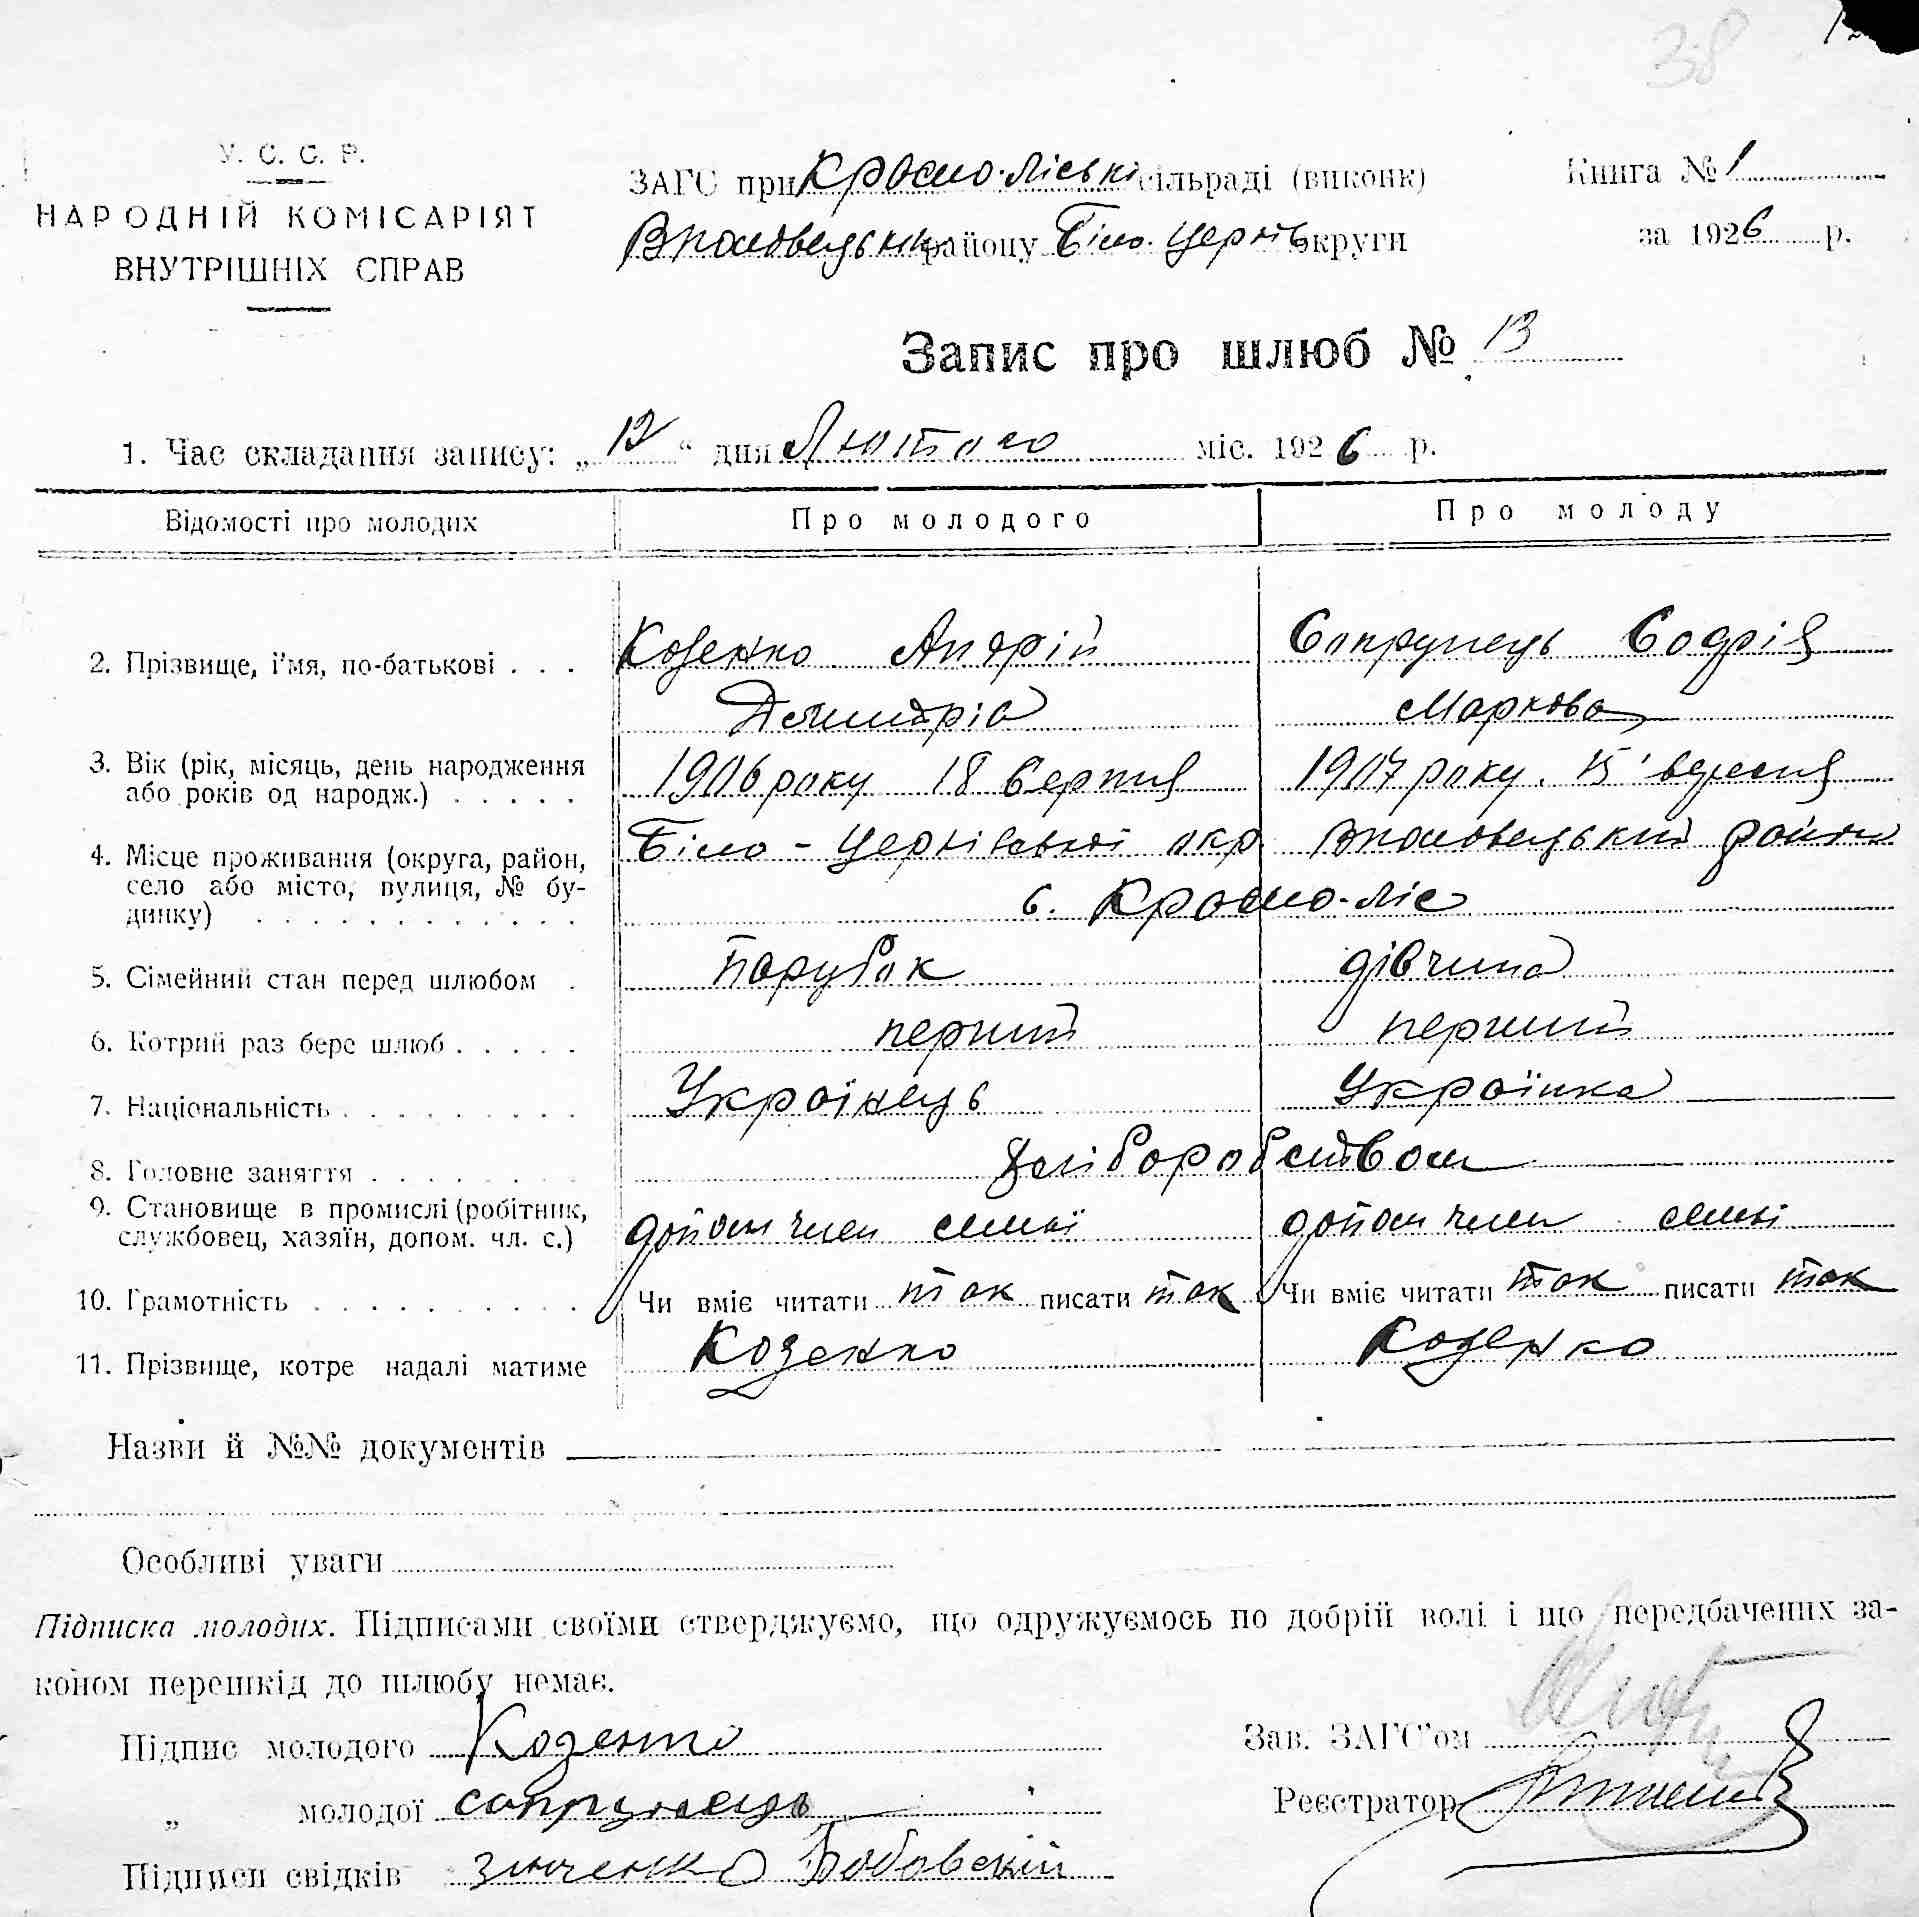 38
У. С. С. Р.
НАРОДНІЙ КОМІСАРІЯТ
ВНУТРІШНІХ СПРАВ
ЗАГС при Красно-ліські сільраді (виконк)
району Біло-церків округи
Книга № 1
за 1926 р.
Запис про шлюб № 13
1. Час складання запису: „12“ дня Лютого міс. 1926 р.
Відомості про молодих Про молодого Про молоду
2. Прізвище, і'мя, по-батькові . . . Козенко Андрій Сопрунець Софія
Дмитріа Маркова
3. Вік (рік, місяць, день народження
або років од народж.) . . . . . 1906 року 18 Серпня 1907 року. 15 вересня
4. Місце проживання (округа, район,
село або місто, вулиця, № бу-
динку) . . . . . . . . . . . . Біло-Церківської окр. район
с. Красно-ліс
5. Сімейний стан перед шлюбом . парубок дівчина
6. Котрий раз бере шлюб . . . . . перший перший
7. Національність . . . . . . . . . Українець Українка
8. Головне заняття . . . . . . . . хліборобством
9. Становище в промислі (робітник,
службовец, хазяїн, допом. чл. с.) допом член семьї допом член семьі
10. Грамотність . . . . . . . . . . Чи вміє читати так писати так Чи вміє читати так писати так
11. Прізвище, котре надалі матиме Козенко Козенко
Назви й №№ документів
Особливі уваги
Підписка молодих. Підписами своїми стверджуємо, що одружуємось по добрій волі і що передбачених за-
коном перешкід до шлюбу немає.
Підпис молодого Козенко
„ молодої сопрунець
Підписи свідків Зинченко Бобовский
Зав. ЗАГС'ом
Реєстратор